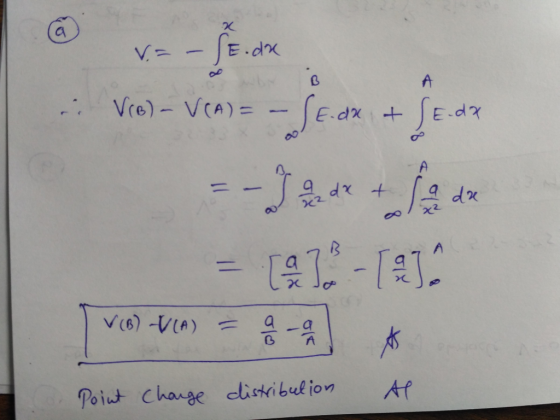 (a)
V = - ∫_∞^x E.dx
∴ V(B) - V(A) = - ∫_∞^B E.dx + ∫_∞^A E.dx
= - ∫_∞^B a/x² dx + ∫_∞^A a/x² dx
= [a/x]_∞^B - [a/x]_∞^A
V(B) - V(A) = a/B - a/A
Point charge distribution